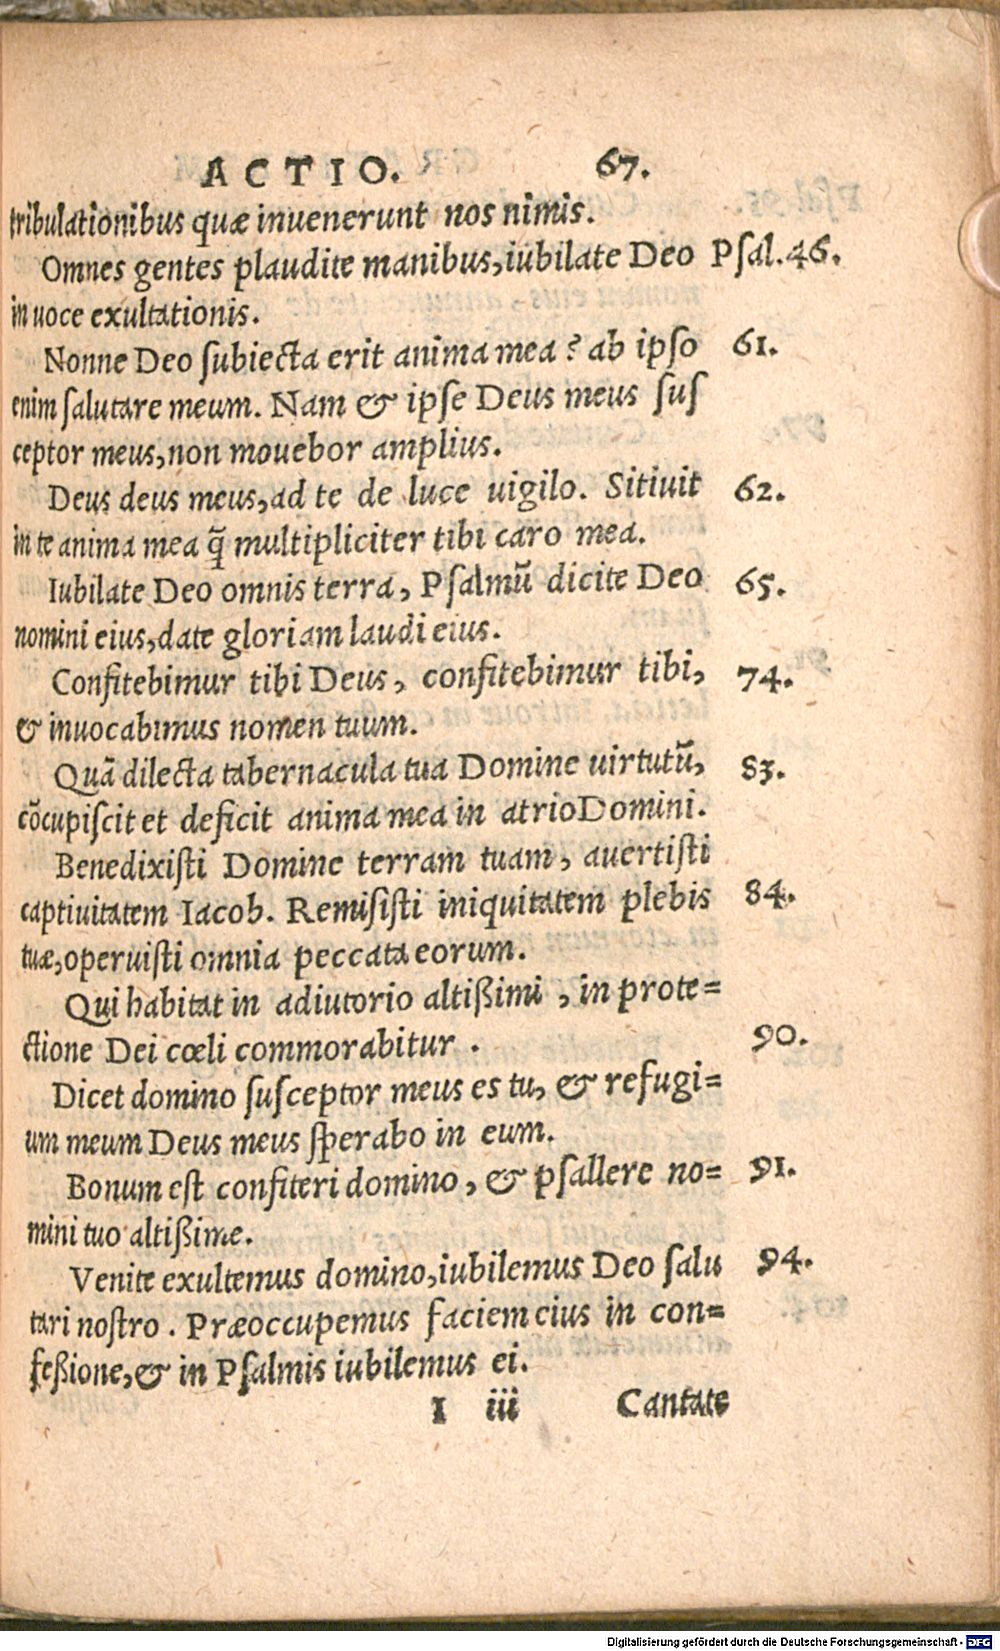 ACTIO. 67.
tribulationibus quæ inuenerunt nos nimis.
Omnes gentes plaudite manibus, iubilate Deo Psal.46.
in uoce exultationis.
Nonne Deo subiecta erit anima mea? ab ipso 61.
enim salutare meum. Nam & ipse Deus meus sus
ceptor meus, non mouebor amplius.
Deus deus meus, ad te de luce uigilo. Sitiuit 62.
in te anima mea q̃ multipliciter tibi caro mea.
Iubilate Deo omnis terra, Psalmũ dicite Deo 65.
nomini eius, date gloriam laudi eius.
Confitebimur tibi Deus, confitebimur tibi, 74.
& inuocabimus nomen tuum.
Quã dilecta tabernacula tua Domine uirtutũ, 83.
cõcupiscit et deficit anima mea in atrio Domini.
Benedixisti Domine terram tuam, auertisti
captiuitatem Iacob. Remisisti iniquitatem plebis 84.
tuæ, operuisti omnia peccata eorum.
Qui habitat in adiutorio altißimi, in prote=
ctione Dei cœli commorabitur. 90.
Dicet domino susceptor meus es tu, & refugi=
um meum Deus meus sperabo in eum.
Bonum est confiteri domino, & psallere no= 91.
mini tuo altißime.
Venite exultemus domino, iubilemus Deo salu 94.
tari nostro. Præoccupemus faciem eius in con=
feßione, & in Psalmis iubilemus ei.
I iii Cantate
Digitalisierung gefördert durch die Deutsche Forschungsgemeinschaft - DFG